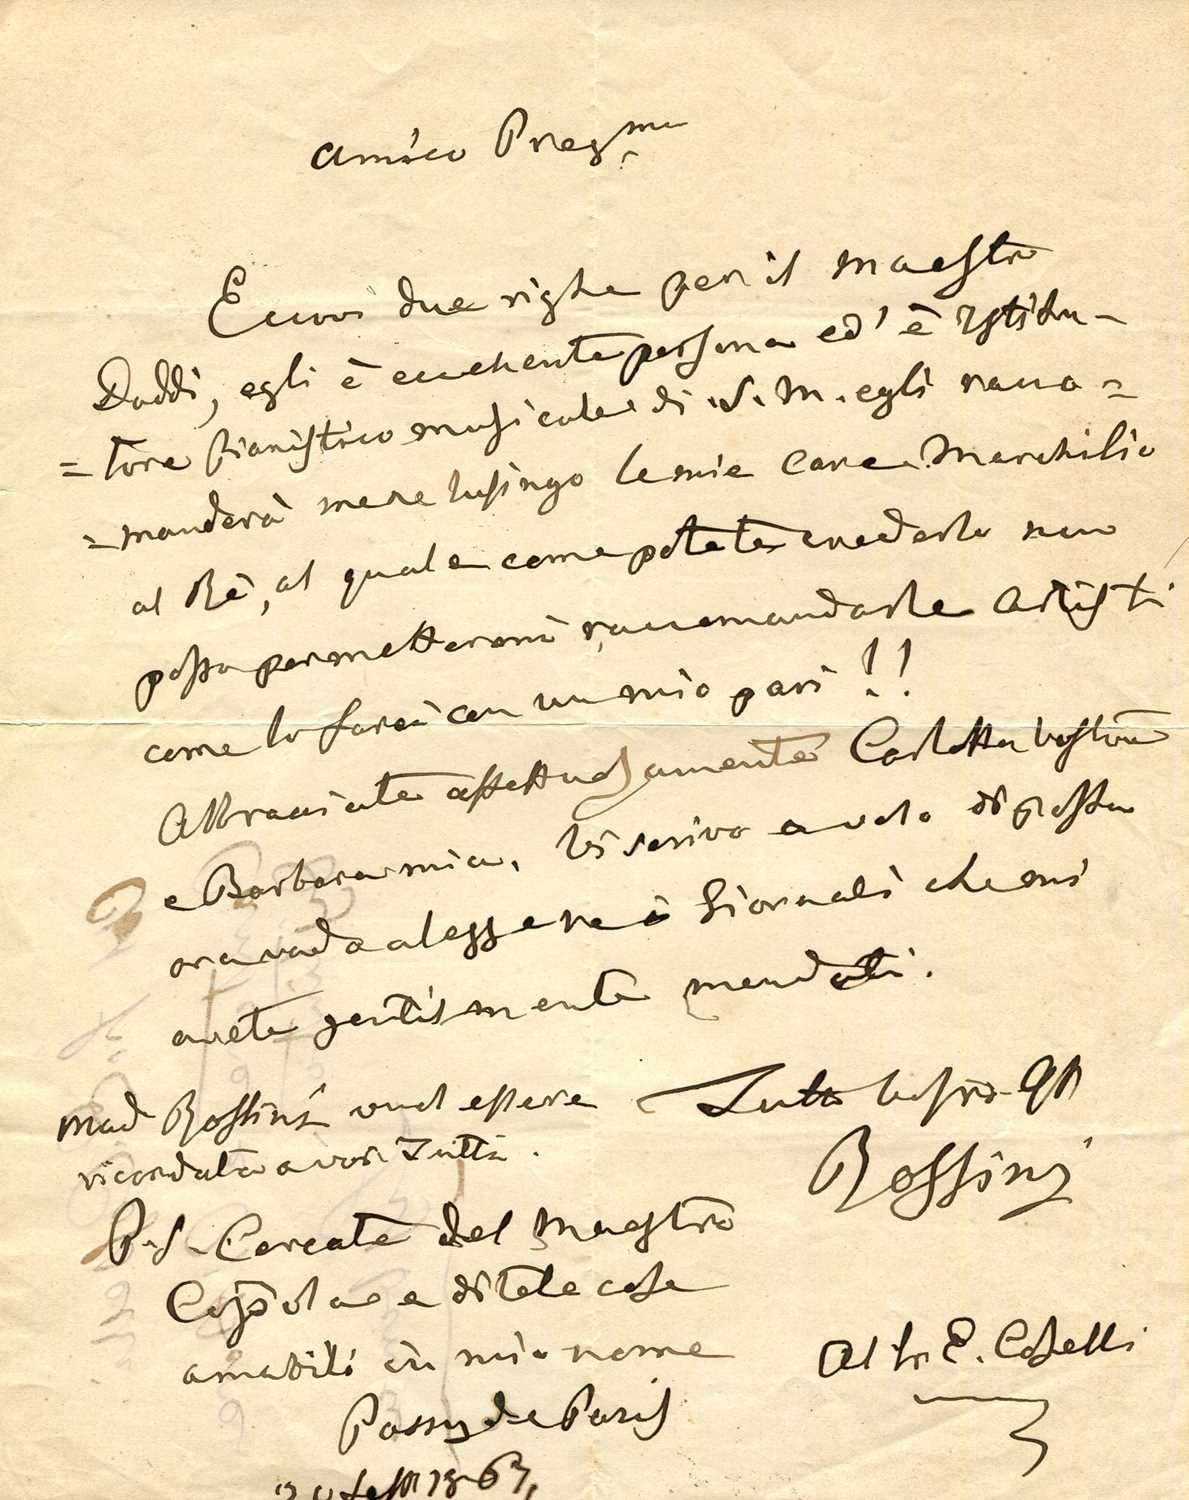 Amico Preg.mo
Eccovi due righe per il Maestro
Daddi, egli è eccellente persona ed' è Istitu-
=tore Pianistico musicale di S. M. egli racco=
=manderà me ne lusingo le mie care Marchilie
al Rè, al quale come potete crederlo non
posso permettermi raccomandarle Artisti
come lo farei con un mio pari!!
Abbracciate affettuosamente Carlotta vostra
e Barbera mia, vi scrivo a volo di posta
ora vado a leggere i Giornali che mi
avete gentilmente mandati.
Mad Rossini vuol essere
ricordata a voi Tutti.
Tutto vostro
Rossini
P. S. Cercate del Maestro
Coppola e ditele cose
amabili in mio nome
Passy de Paris
Al Sr. E. Coselli